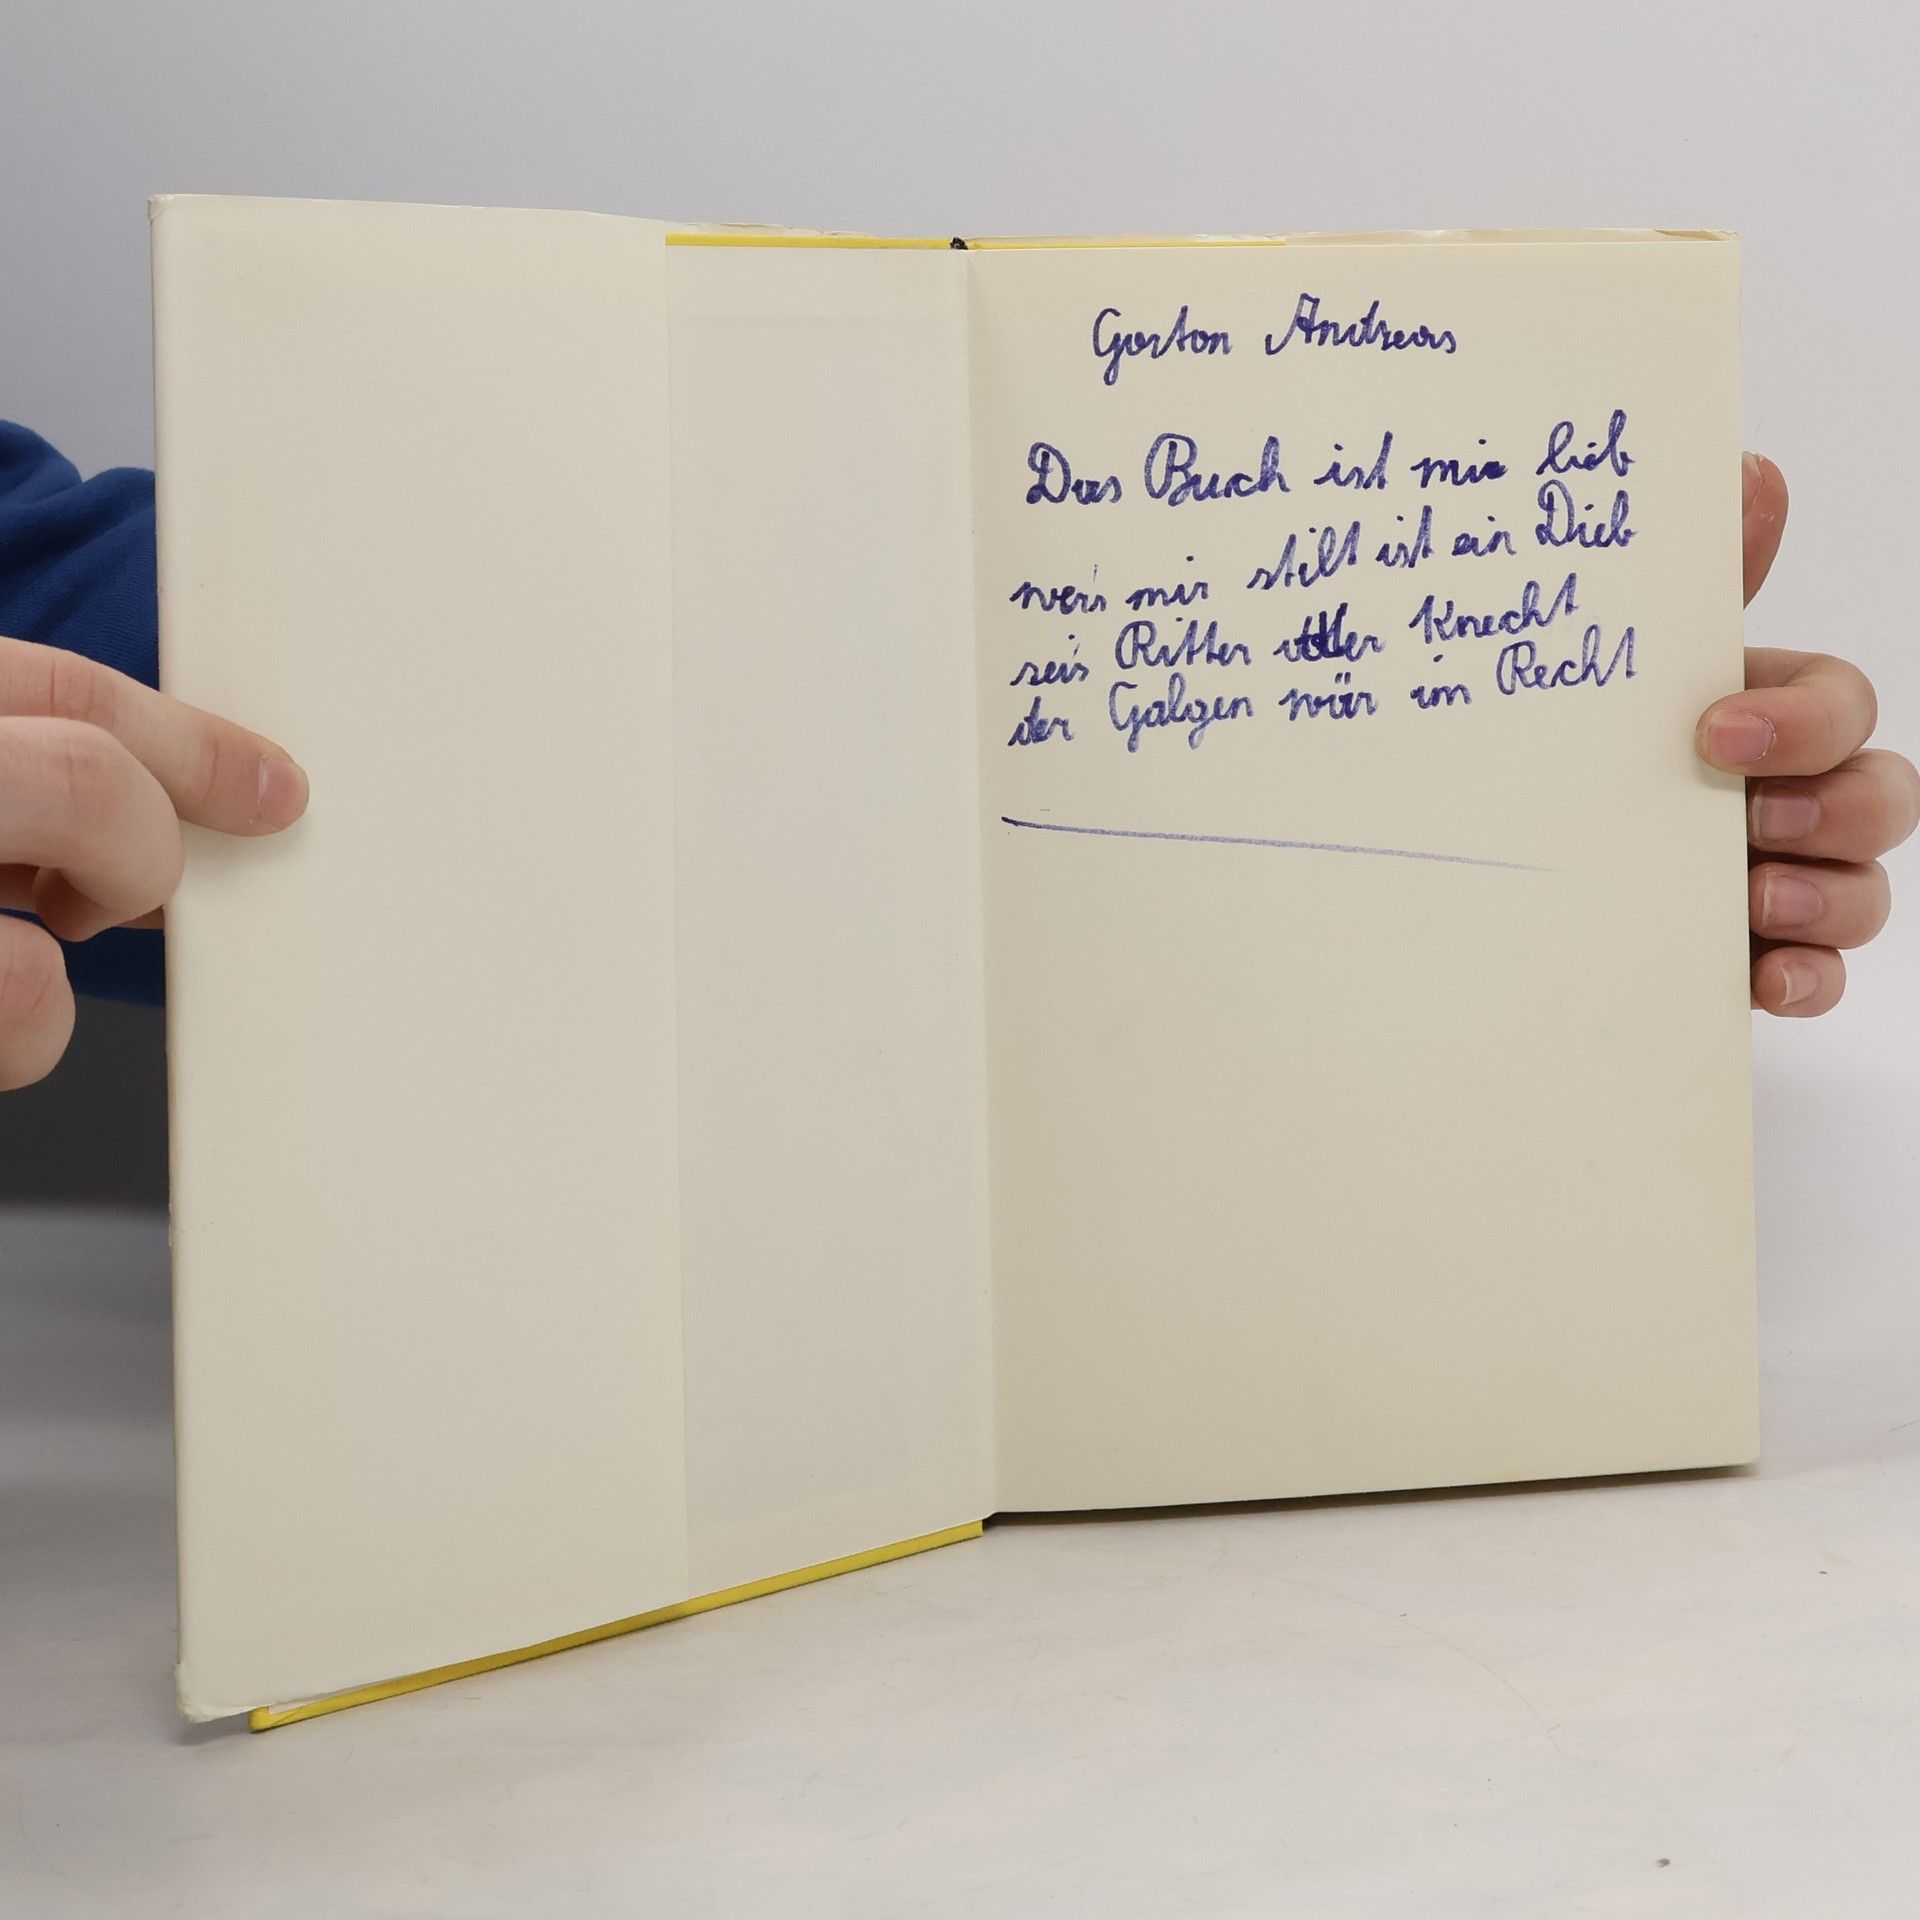 Gorton Andreas
Das Buch ist mir lieb
wer's mir stilt ist ein Dieb
sei's Ritter oder Knecht
der Galgen wär im Recht